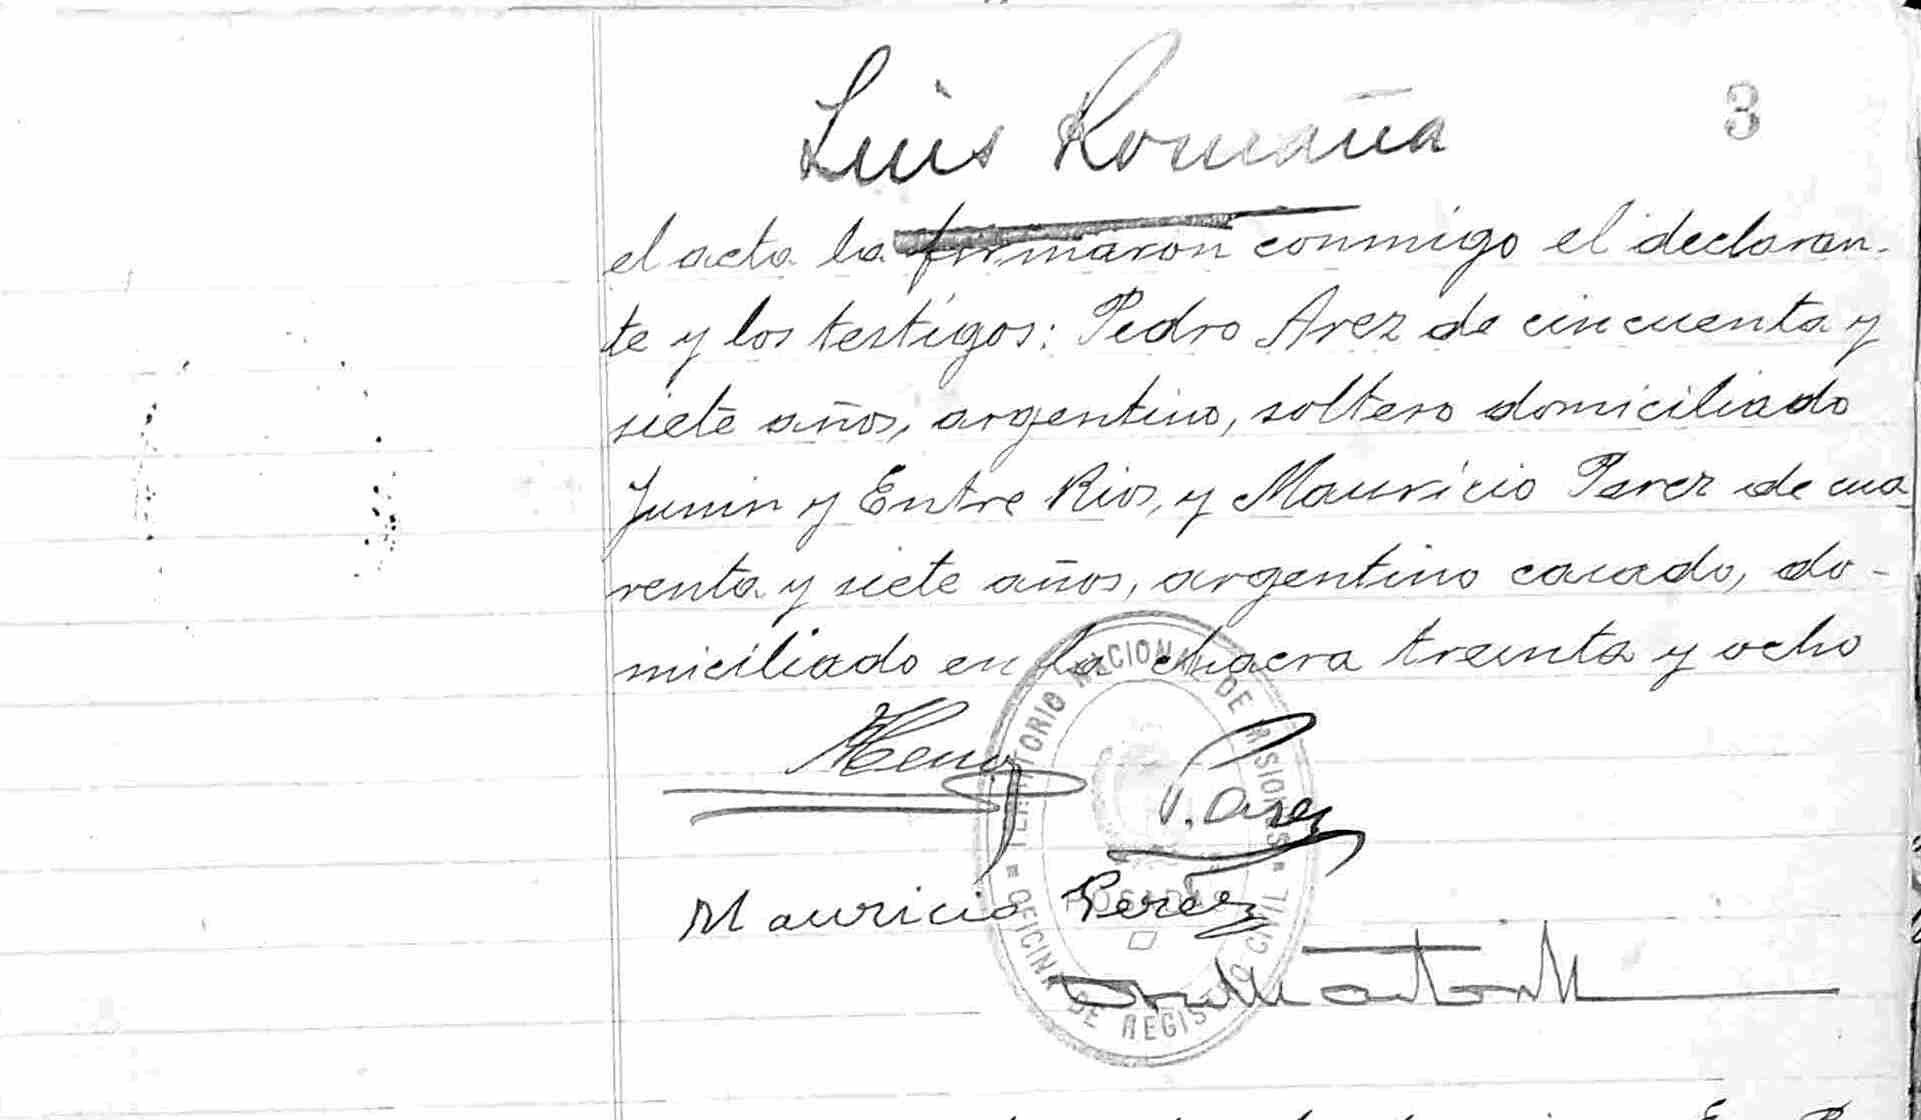 Luis Romaña
3
el acta la firmaron conmigo el declaran-
te y los testigos: Pedro Arez de cincuenta y
siete años, argentino, soltero domiciliado
Junin y Entre Rios, y Mauricio Perez de cua
renta y siete años, argentino casado, do-
miciliado en la chacra treinta y ocho
TERRITORIO NACIONAL DE MISIONES
Mauricio Perez
POSADAS
OFICINA DE REGISTRO CIVIL